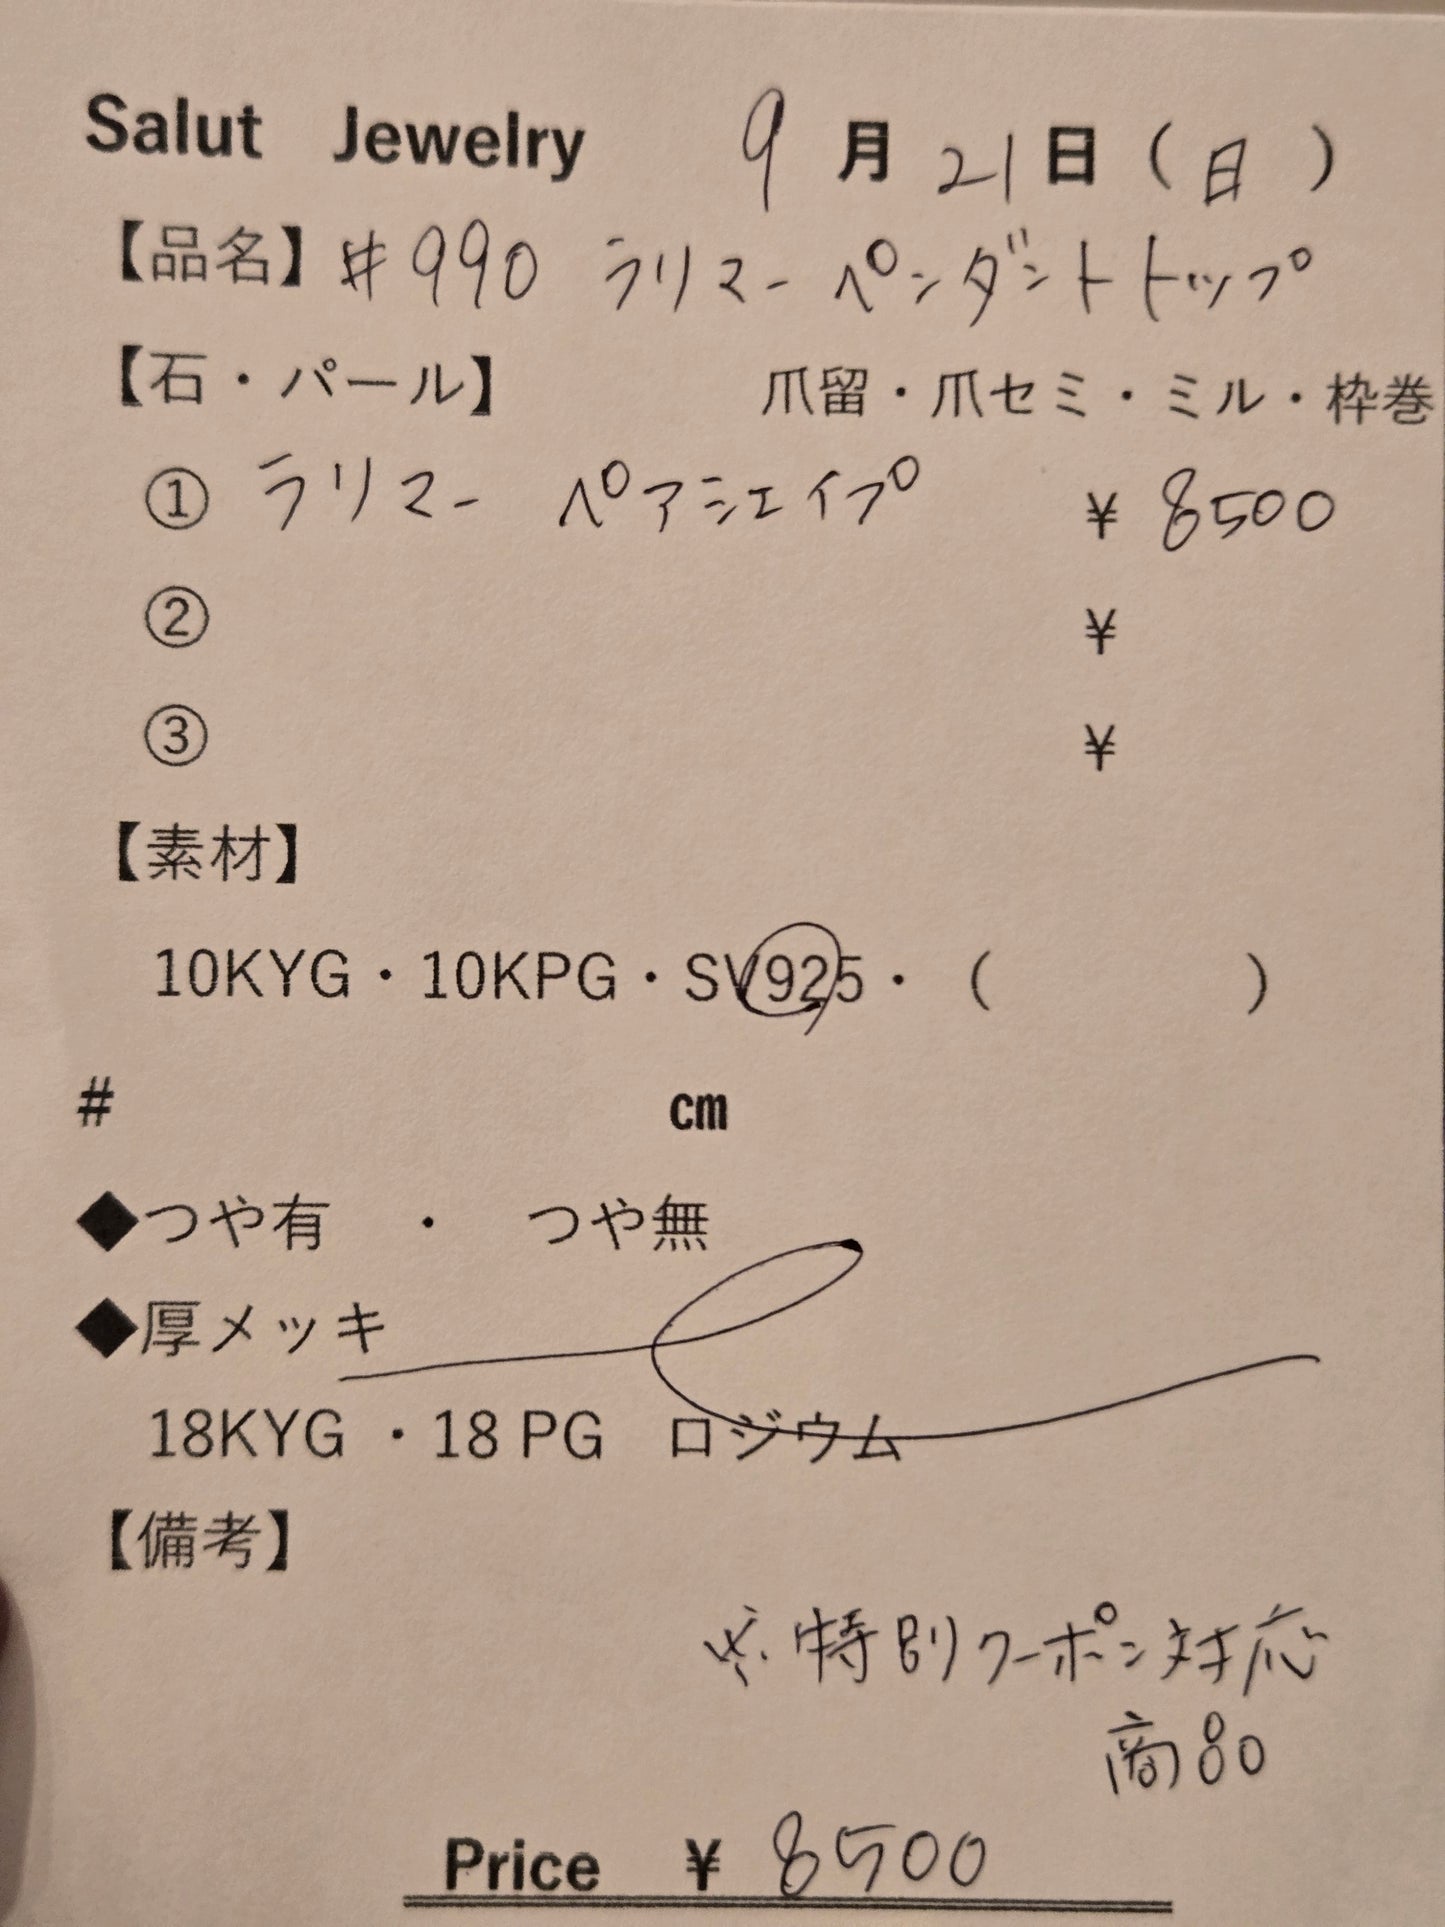 Salut Jewelry 9月21日(日)
【品名】#990 ラリマー ペンダントトップ
【石・パール】 爪留・爪セミ・ミル・枠巻
① ラリマー ペアシェイプ ¥8500
② ¥
③ ¥
【素材】
10KYG・10KPG・SV925・( )
# cm
◆つや有 ・ つや無
◆厚メッキ
18KYG ・18 PG ロジウム
【備考】
※特別クーポン対応
商80
Price ¥ 8500